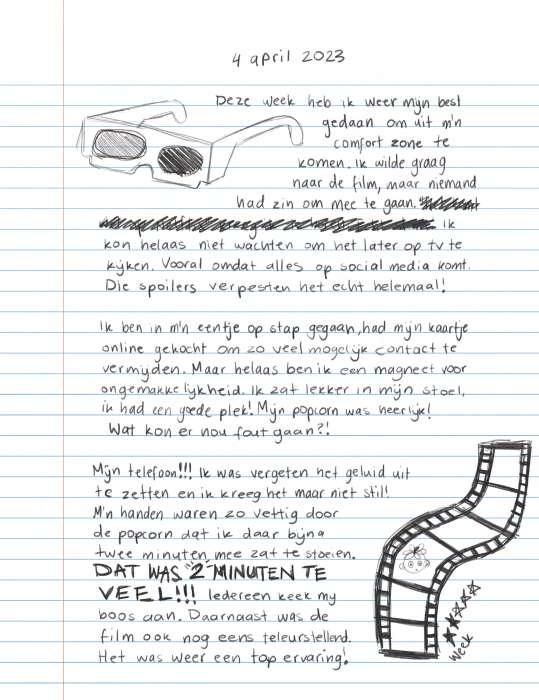 4 april 2023
Deze week heb ik weer mijn best
gedaan om uit m'n
comfort zone te
komen. Ik wilde graag
naar de film, maar niemand
had zin om mee te gaan.
Ik
kon helaas niet wachten om het later op tv te
kijken. Vooral omdat alles op social media komt.
Die spoilers verpesten het echt helemaal!
Ik ben in m'n eentje op stap gegaan, had mijn kaartje
online gekocht om zo veel mogelijk contact te
vermijden. Maar helaas ben ik een magneet voor
ongemakkelijkheid. Ik zat lekker in mijn stoel,
ik had een goede plek! Mijn popcorn was heerlijk!
Wat kon er nou fout gaan?!
Mijn telefoon!!! Ik was vergeten het geluid uit
te zetten en ik kreeg het maar niet stil!
M'n handen waren zo vettig door
de popcorn dat ik daar bijna
twee minuten mee zat te stoeien.
DAT WAS "2" MINUTEN TE
VEEL!!! Iedereen keek mij
boos aan. Daarnaast was de
film ook nog eens teleurstellend.
Het was weer een top ervaring!
Week